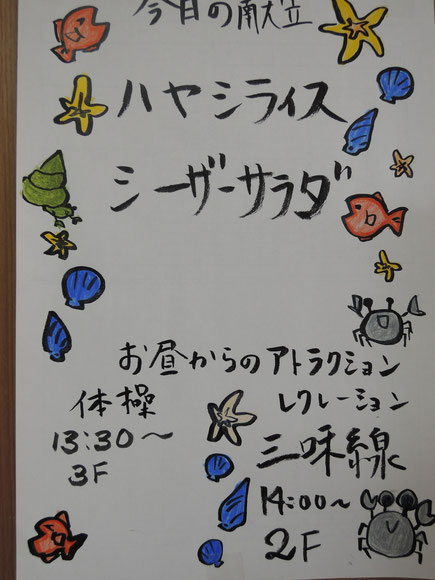 今日の献立
ハヤシライス
シーザーサラダ
お昼からのアトラクション
体操
13:30～
3F
レクレーション
三味線
14:00～
2F